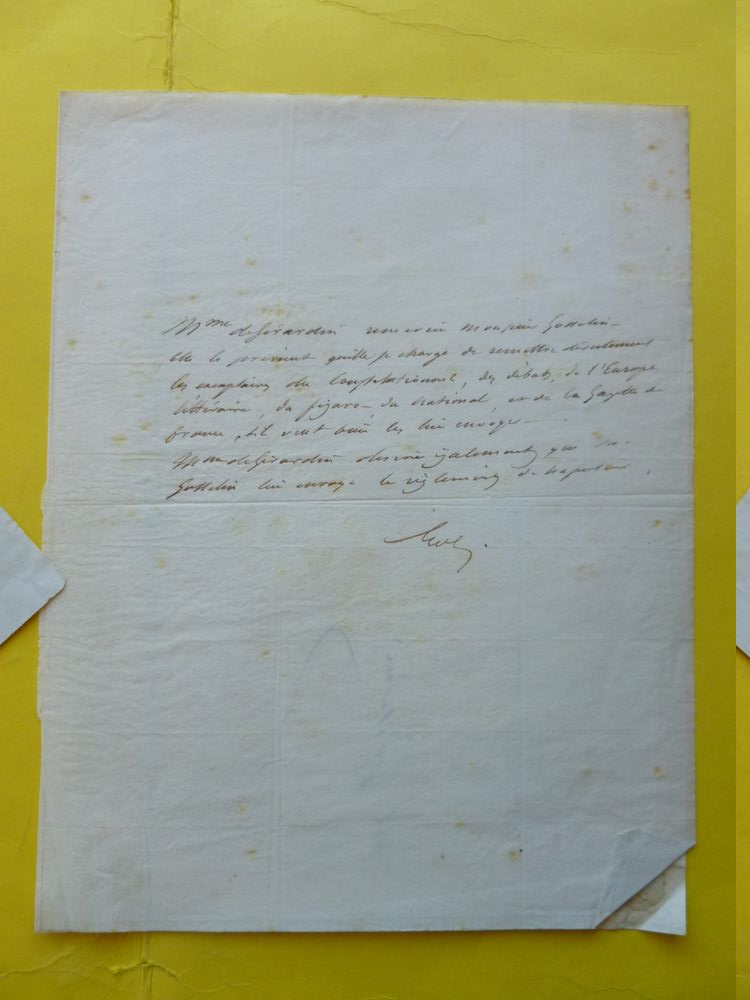 Mme de Girardin remercie Monsieur Gosselin
elle le prévient qu'elle se charge de remettre directement
les exemplaires du Constitutionnel, des débats, de l'Europe
littéraire, du figaro du national, et de la Gazette de
france, s'il veut bien les lui envoyer
Mme de Girardin désire également que Mr
Gosselin lui envoye le règlement de